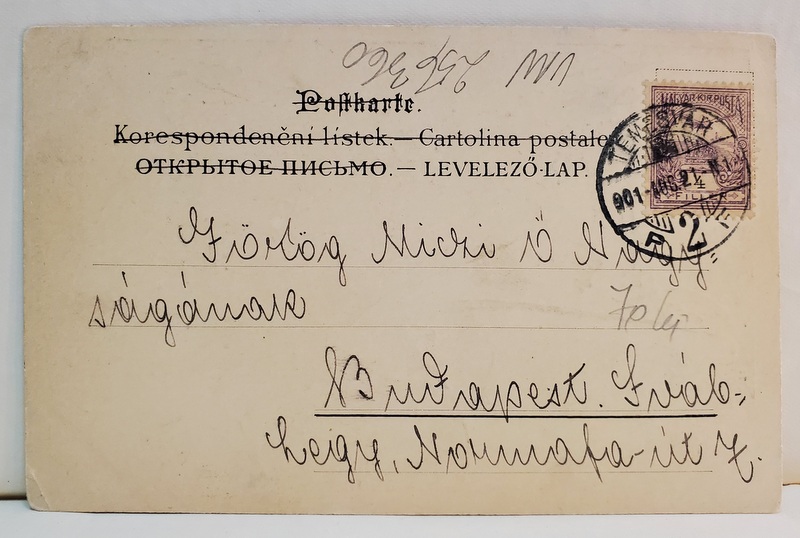 VM 256360
Postkarte.
Korespondenční lístek.— Cartolina postale
ОТКРЫТОЕ ПИСЬМО. — LEVELEZŐ-LAP.
MAGYAR·KIR·POSTA
TEMESVÁR
901
21
FILLÉR
2
P
Görög Miczi Ő Nagy=
ságának
Budapest. Sváb-
hegy, Normafa-út 7.